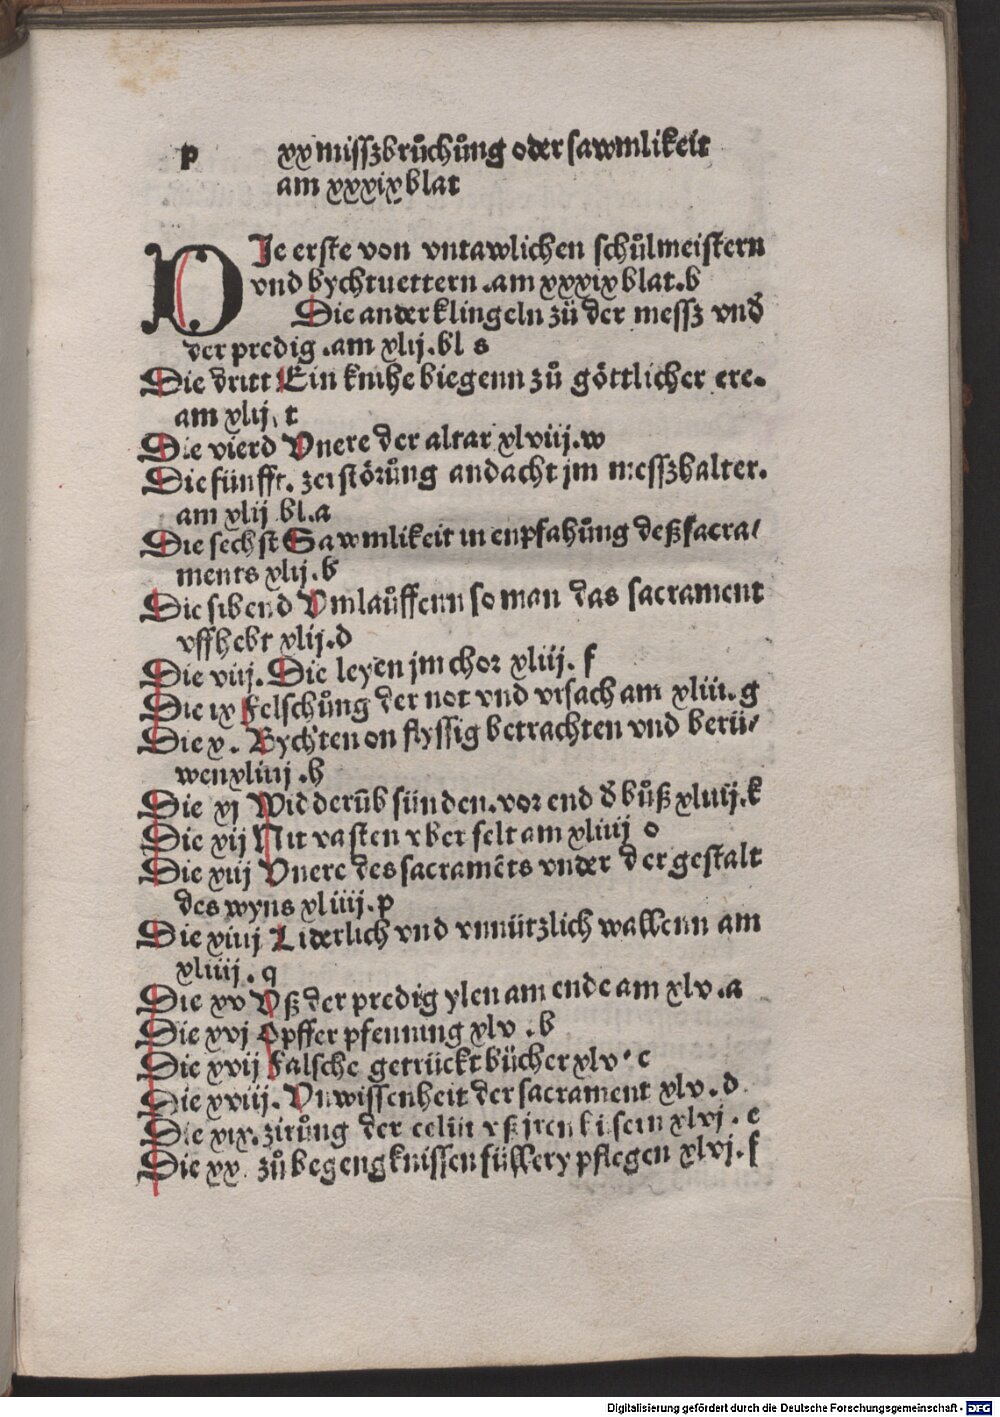 p xx misszbrůchůng oder sawmlikeit
am xxxix blat
DIe erste von vntawlichen schůlmeistern
vnd bychtuettern .am xxxix blat.b
Die ander klingeln zů der messz vnd̕
der predig .am xlij .bl s
Die dritt Ein knihe biegenn zů göttlicher ere.
am xlij, t
Die vierd Vnere der altar xlviij.w
Die fünfft. zerstörůng andacht jm messzhalter.
am xlij bl.a
Die sechst Sawmlikeit in enpfahůng deß sacra/
ments xlij.b
Die sibend Vmlaůffenn so man das sacrament
vffhebt xlij.d
Die viij. Die leyen jm chor xliij. f
Die ix Felschůng der not vnd vrsach am xliii. g
Die x. Bychten on flyssig betrachten vnd berü/
wen xliiij .h
Die xj Widderũb sünden.vor end d̕ bůß xliiij.k
Die xij Nit vasten vber felt am xliiij o
Die xiij Vnere des sacramēts vnder der gestalt
des wyns xliiij.p
Die xiiij Liderlich vnd vnnützlich wallenn am
xliiij . q
Die xv Vß der predig ylen am ende am xlv .a
Die xvj Opffer pfenning xlv .b
Die xvij Falsche getrückt bücher xlv . c
Die xviij. Vnwissenheit der sacrament xlv. d
Die xix. zirůng der celin vß jren kisern xlvj . e
Die xx. zů begengknissen füllery pflegen xlvj. f
Digitalisierung gefördert durch die Deutsche Forschungsgemeinschaft - DFG